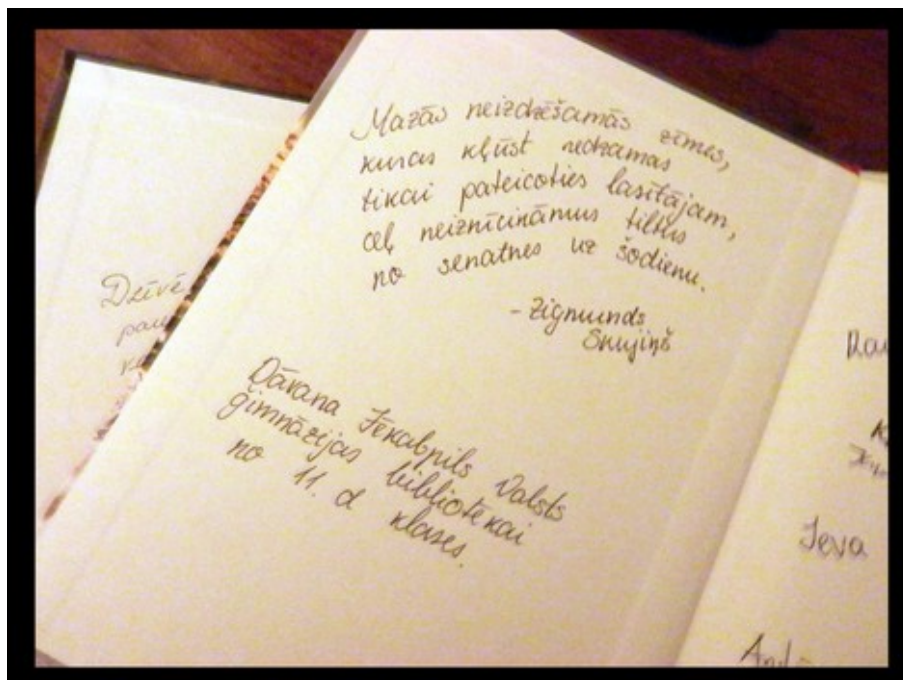 Mazās neizdzēšamās zīmes,
kuras kļūst redzamas
tikai pateicoties lasītājam,
ceļ neiznīcināmus tiltus
no senatnes uz šodienu.
- Zigmunds
Skujiņš
Dāvana Jēkabpils Valsts
ģimnāzijas bibliotēkai
no 11. d klases.
Dzīvē
Ieva